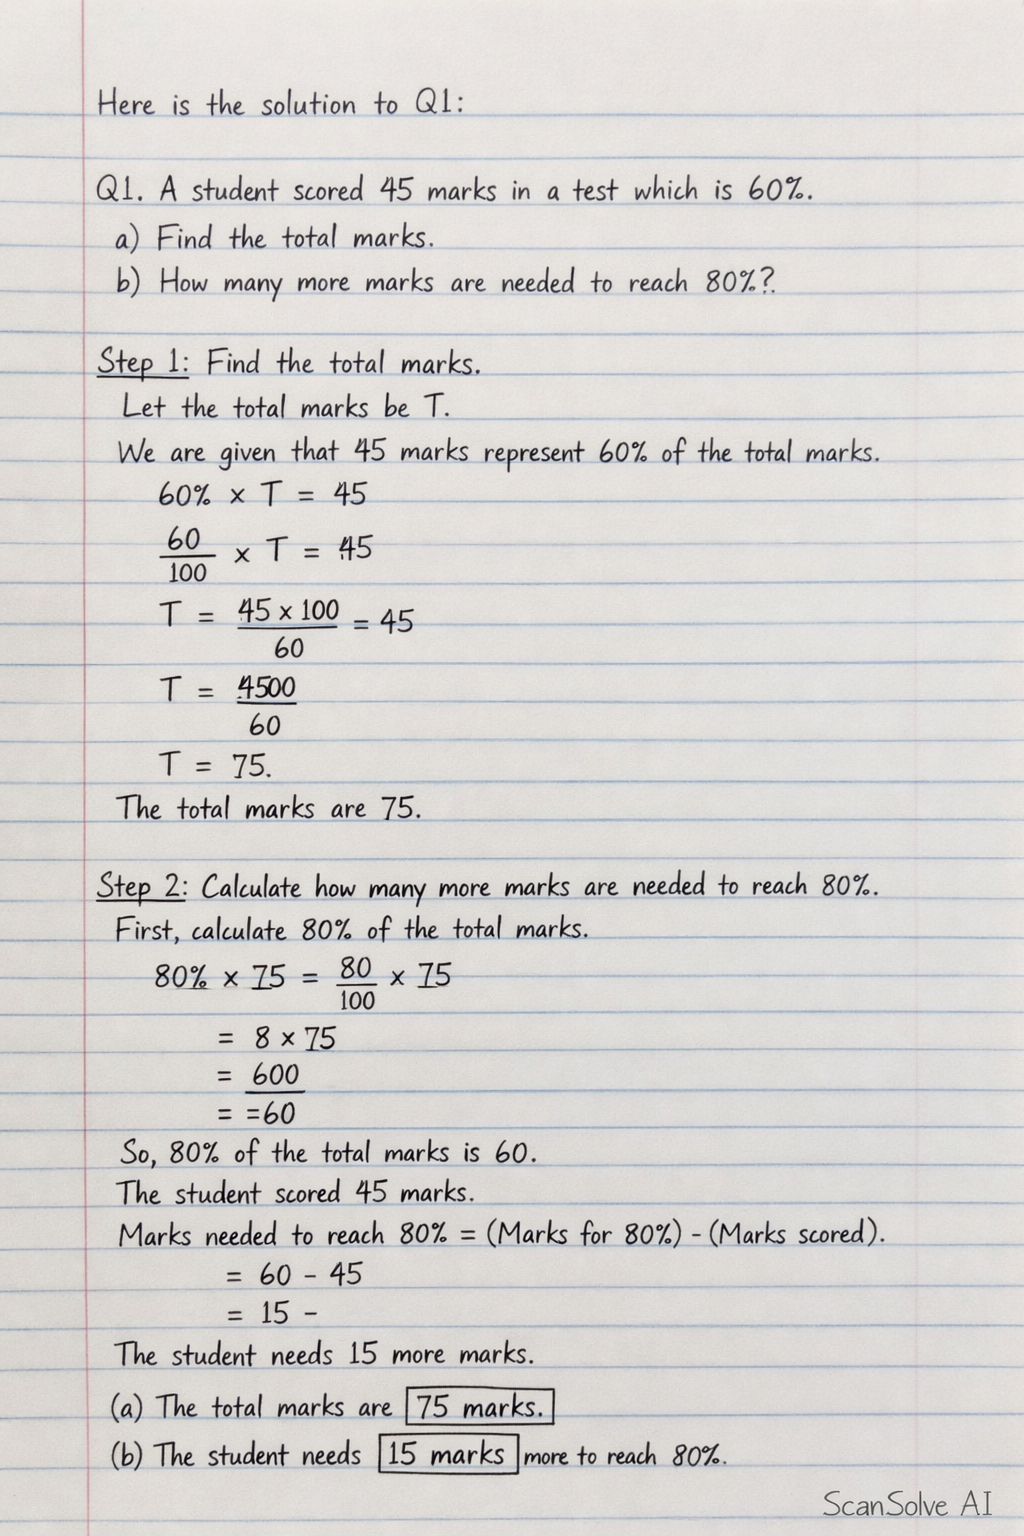 Here is the solution to Q1:
Q1. A student scored 45 marks in a test which is 60%.
a) Find the total marks.
b) How many more marks are needed to reach 80%?
Step 1: Find the total marks.
Let the total marks be T.
We are given that 45 marks represent 60% of the total marks.
60% × T = 45
60/100 × T = 45
T = 45 × 100/60 = 45
T = 4500/60
T = 75.
The total marks are 75.
Step 2: Calculate how many more marks are needed to reach 80%.
First, calculate 80% of the total marks.
80% × 75 = 80/100 × 75
= 8 × 75
= 600
= =60
So, 80% of the total marks is 60.
The student scored 45 marks.
Marks needed to reach 80% = (Marks for 80%) - (Marks scored).
= 60 - 45
= 15 -
The student needs 15 more marks.
(a) The total marks are 75 marks.
(b) The student needs 15 marks more to reach 80%.
ScanSolve AI